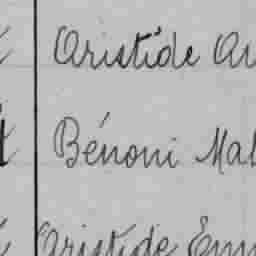 Aristide Au
Bénoni Mal
Aristide Emm